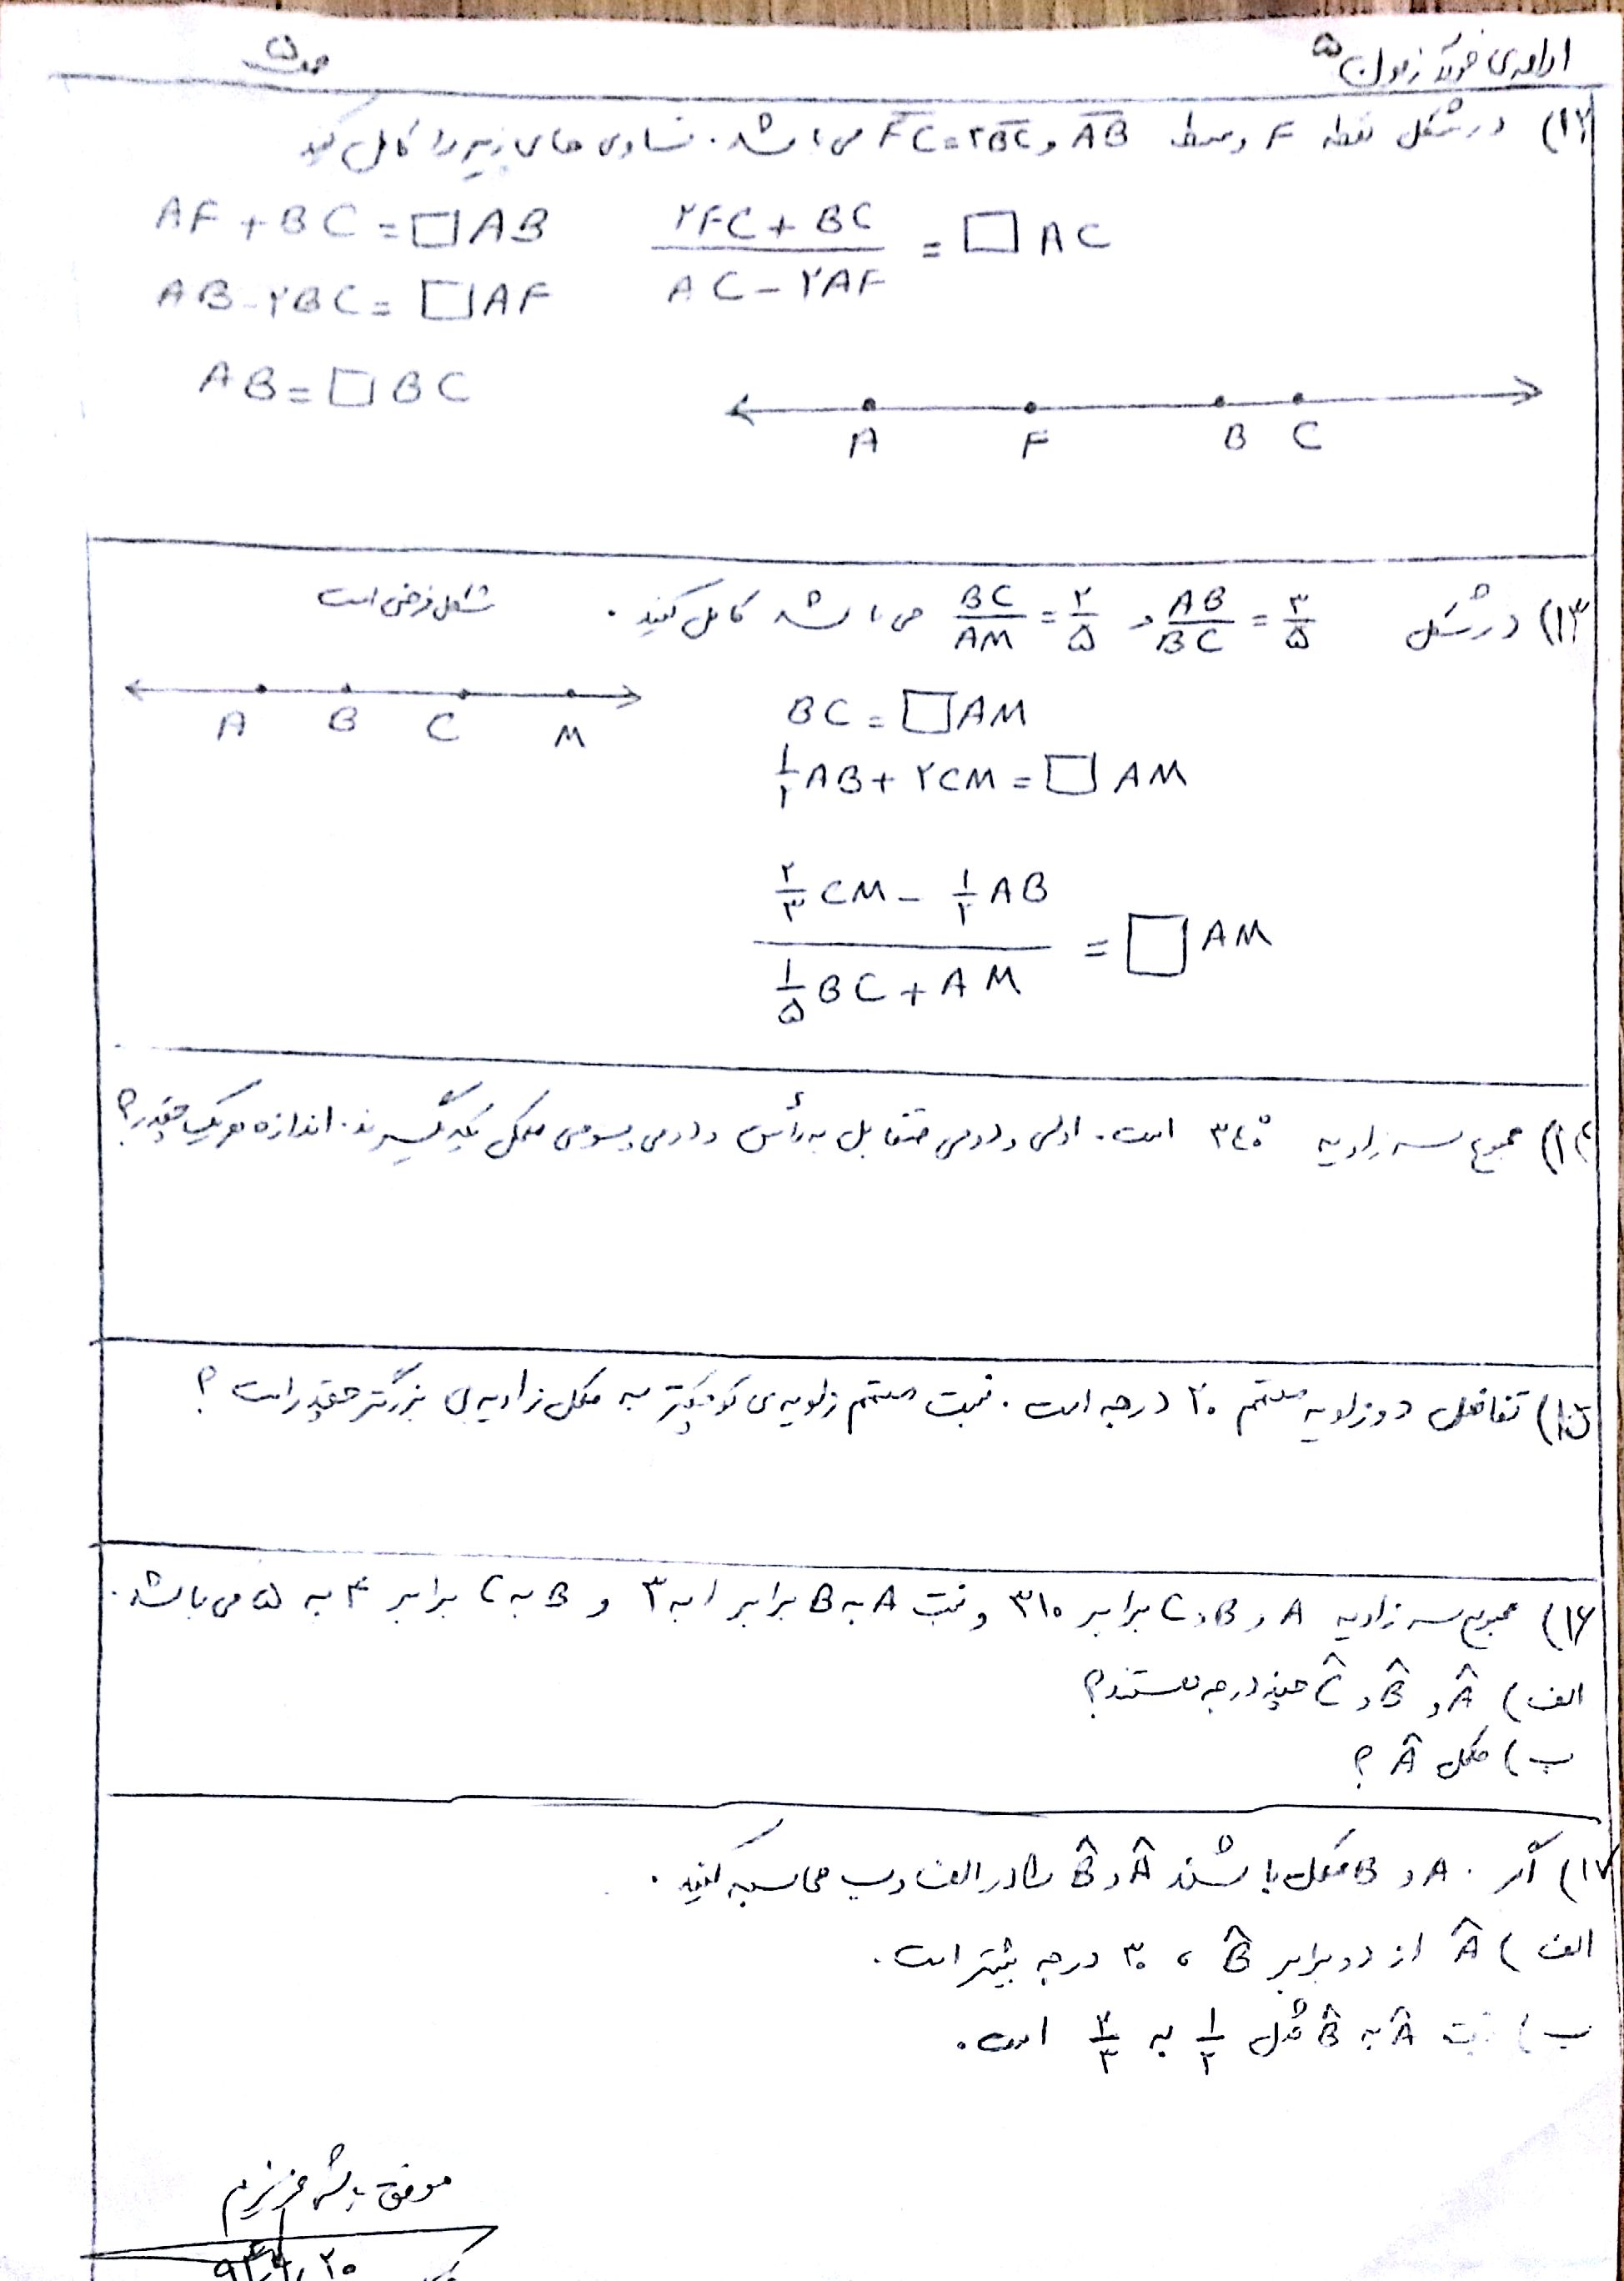 ادامه‌ی خودآزمون ۵
ص ۵
۱۲) در شکل نقطه F وسط AB و FC=۲BC می باشد. تساوی های زیر را کامل کنید
AF + BC = □AB
۲FC + BC / AC - ۲AF = □ AC
AB - ۲BC = □AF
AB = □ BC
A F B C
۱۳) در شکل AB/BC = ۳/۵ و BC/AM = ۲/۵ می باشد کامل کنید.
شکل فرضی است
A B C M
BC = □AM
۱/۲ AB + ۲CM = □ AM
۲/۳ CM - ۱/۲ AB / ۱/۵ BC + AM = □ AM
۱۴) مجموع سه زاویه ۳۴۰° است. اولی و دومی متقابل به رأس و دومی و سومی مکمل یکدیگرند. اندازه هر یک چقدر؟
۱۵) تفاضل دو زاویه متمم ۲۰ درجه است. نسبت متمم زاویه ی کوچکتر به مکمل زاویه ی بزرگتر چقدر است ؟
۱۶) مجموع سه زاویه A و B و C برابر ۳۱۰ و نسبت A به B برابر ۱ به ۳ و B به C برابر ۴ به ۵ می باشد.
الف) Â و B̂ و Ĉ چند درجه هستند؟
ب) مکمل Â ؟
۱۷) اگر A و B مکمل باشند Â و B̂ را در الف و ب محاسبه کنید.
الف) Â از دو برابر B̂ ، ۳۰ درجه بیشتر است.
ب) نسبت Â به B̂ مثل ۱/۲ به ۲/۳ است.
موفق باشی عزیزم